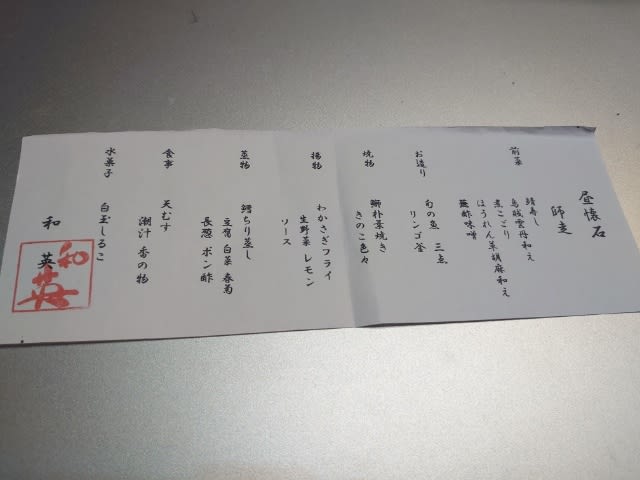 昼懐石
師走
前菜
鯖寿し
烏賊雲丹和え
煮こごり
ほうれん草胡麻和え
蕪酢味噌
お造り
旬の魚 三点
リンゴ釜
焼物
鰤朴葉焼き
きのこ色々
揚物
わかさぎフライ
生野菜 レモン
ソース
蒸物
鱈ちり蒸し
豆腐 白菜 春菊
長葱 ポン酢
食事
天むす
潮汁 香の物
水菓子
白玉しるこ
和英
和英